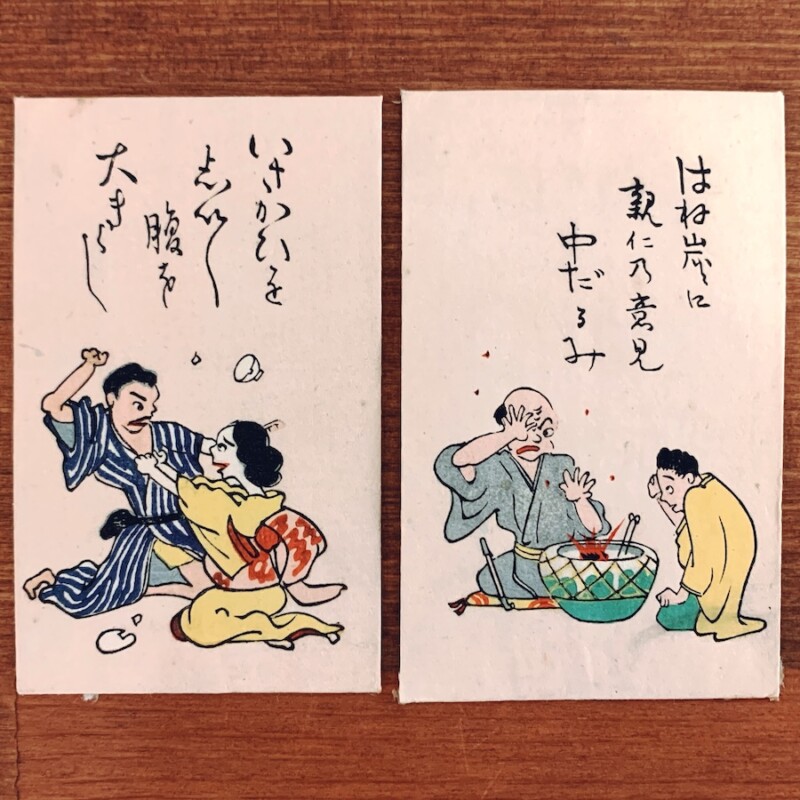 いさかひを
志い〱
腹を
大きくし
はね炭に
親仁乃意見
中だるみ